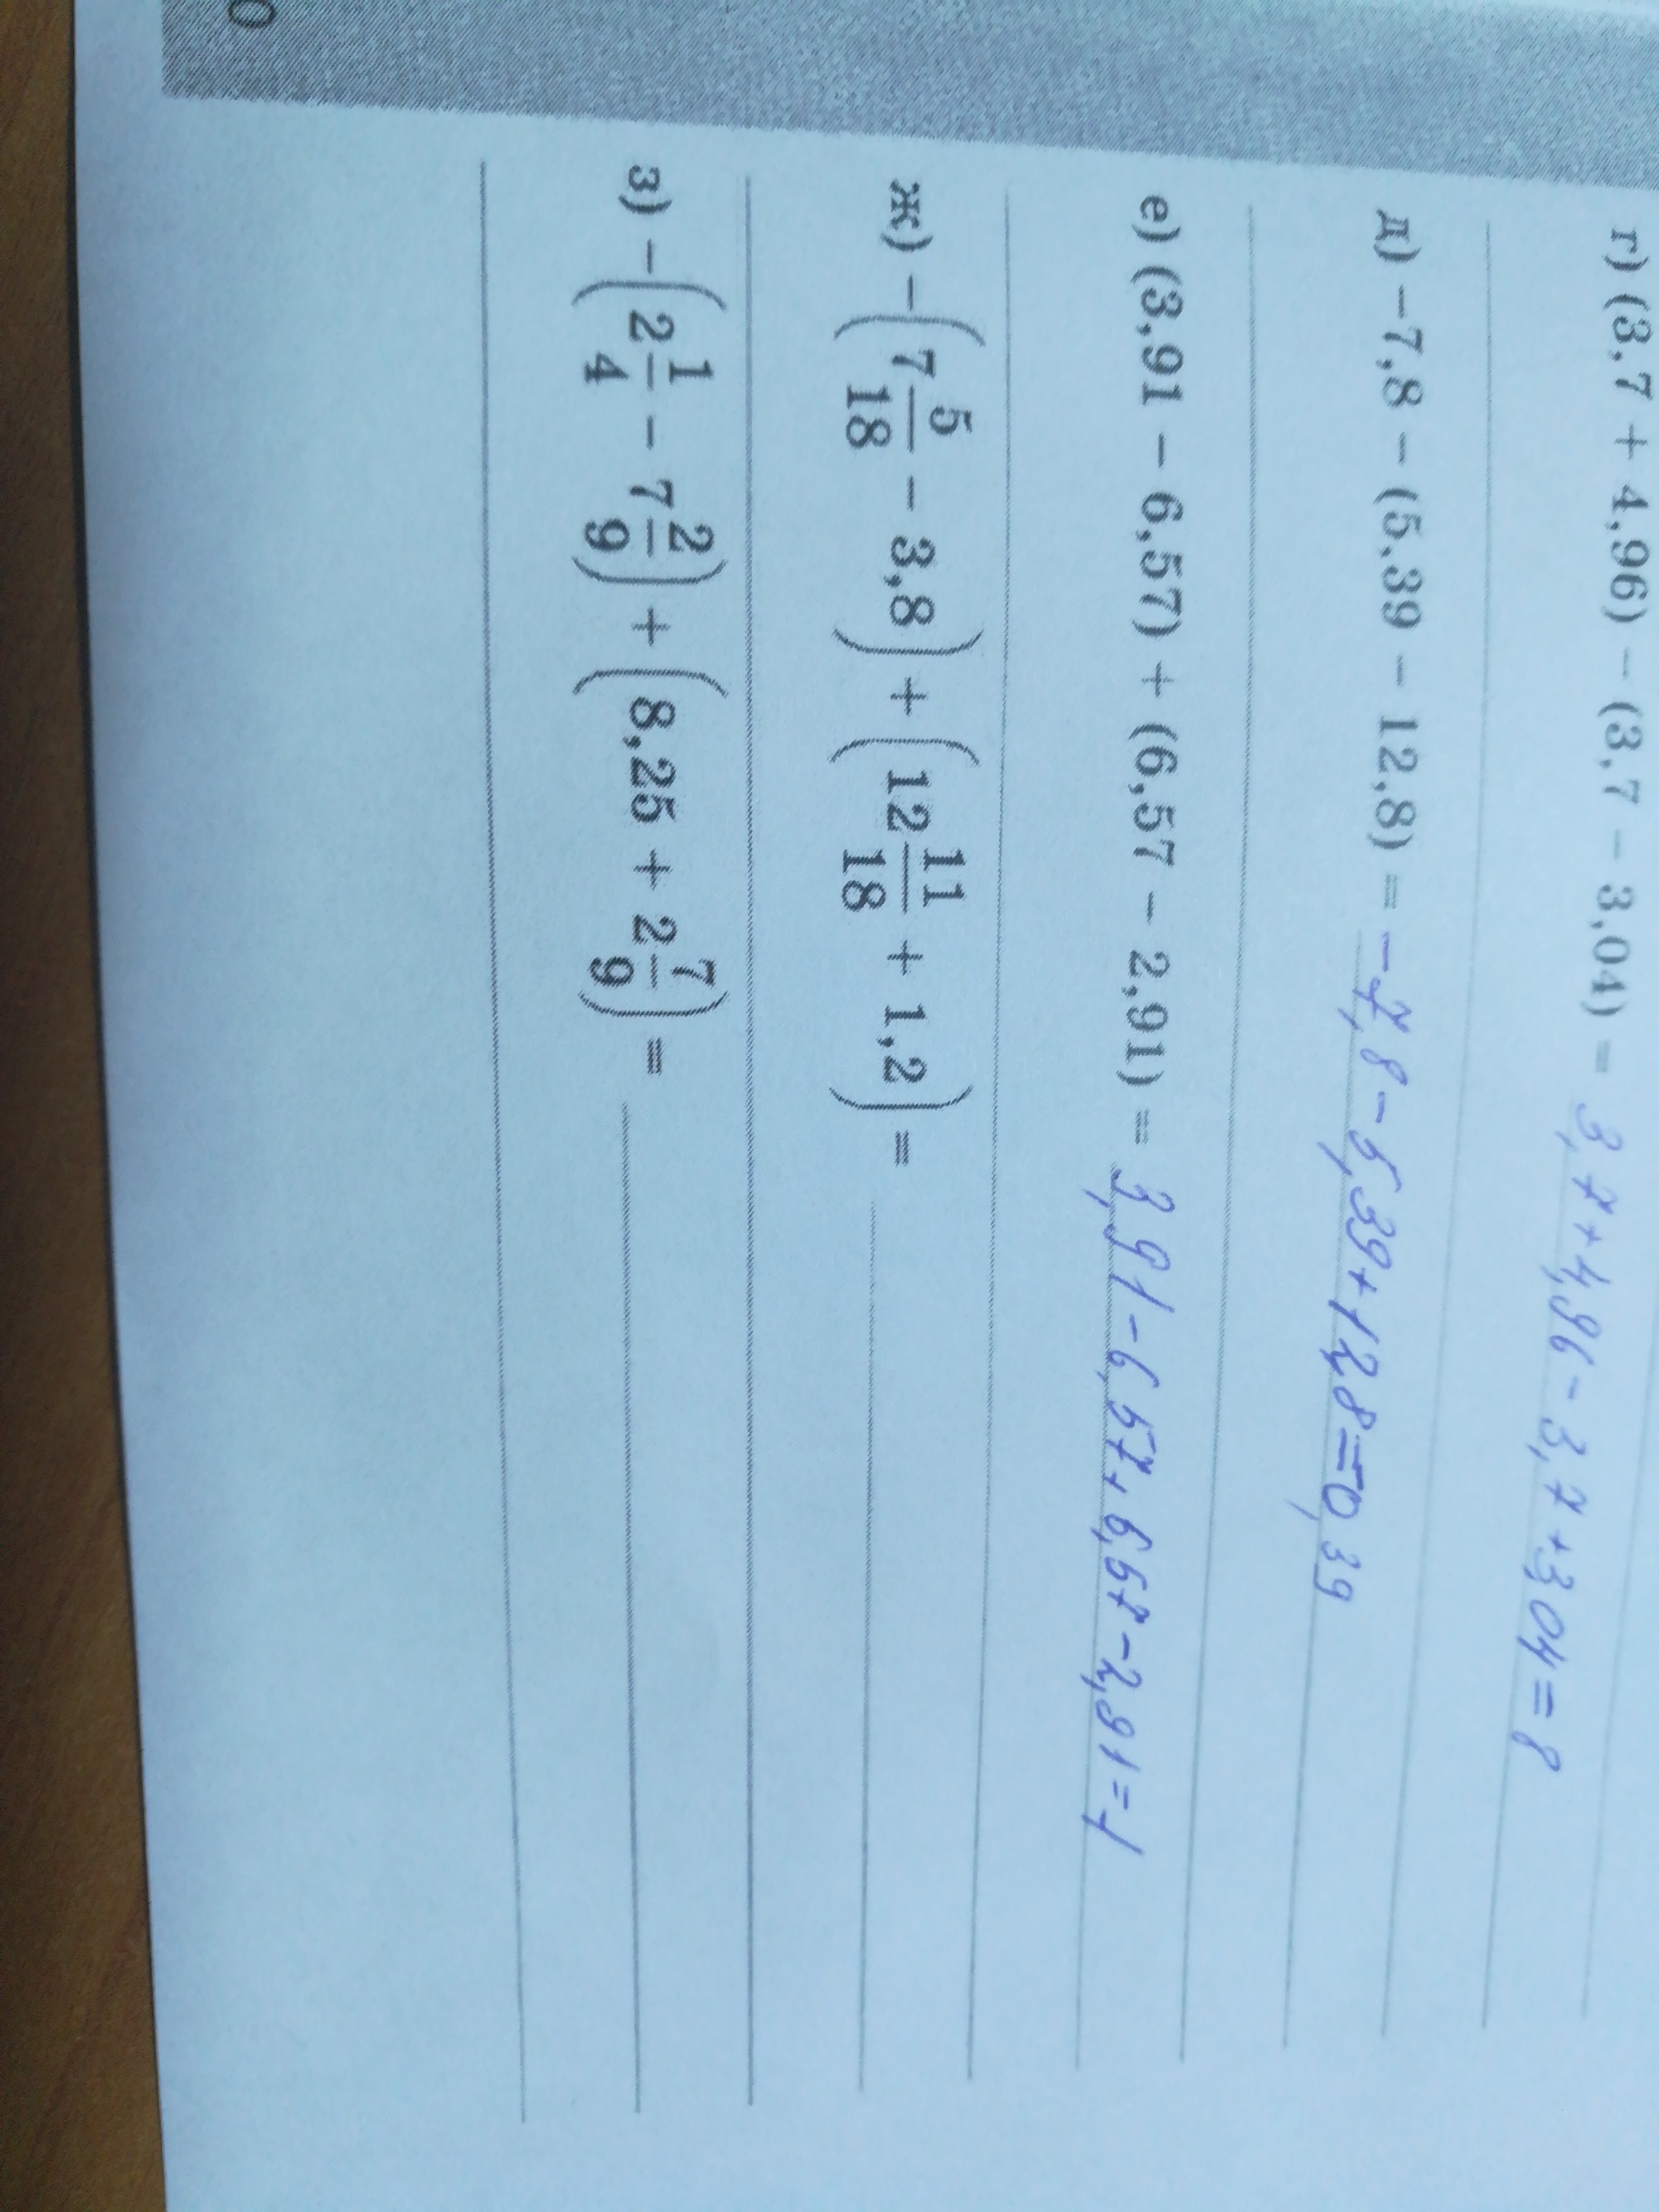 г) (3,7 + 4,96) − (3,7 − 3,04) = 3,7+4,96-3,7+3,04=8
д) −7,8 − (5,39 − 12,8) = -7,8-5,39+12,8=-0,39
е) (3,91 − 6,57) + (6,57 − 2,91) = 3,91-6,57+6,57-2,91=1
ж) −(7 5/18 − 3,8) + (12 11/18 + 1,2) =
з) −(2 1/4 − 7 2/9) + (8,25 + 2 7/9) =
0